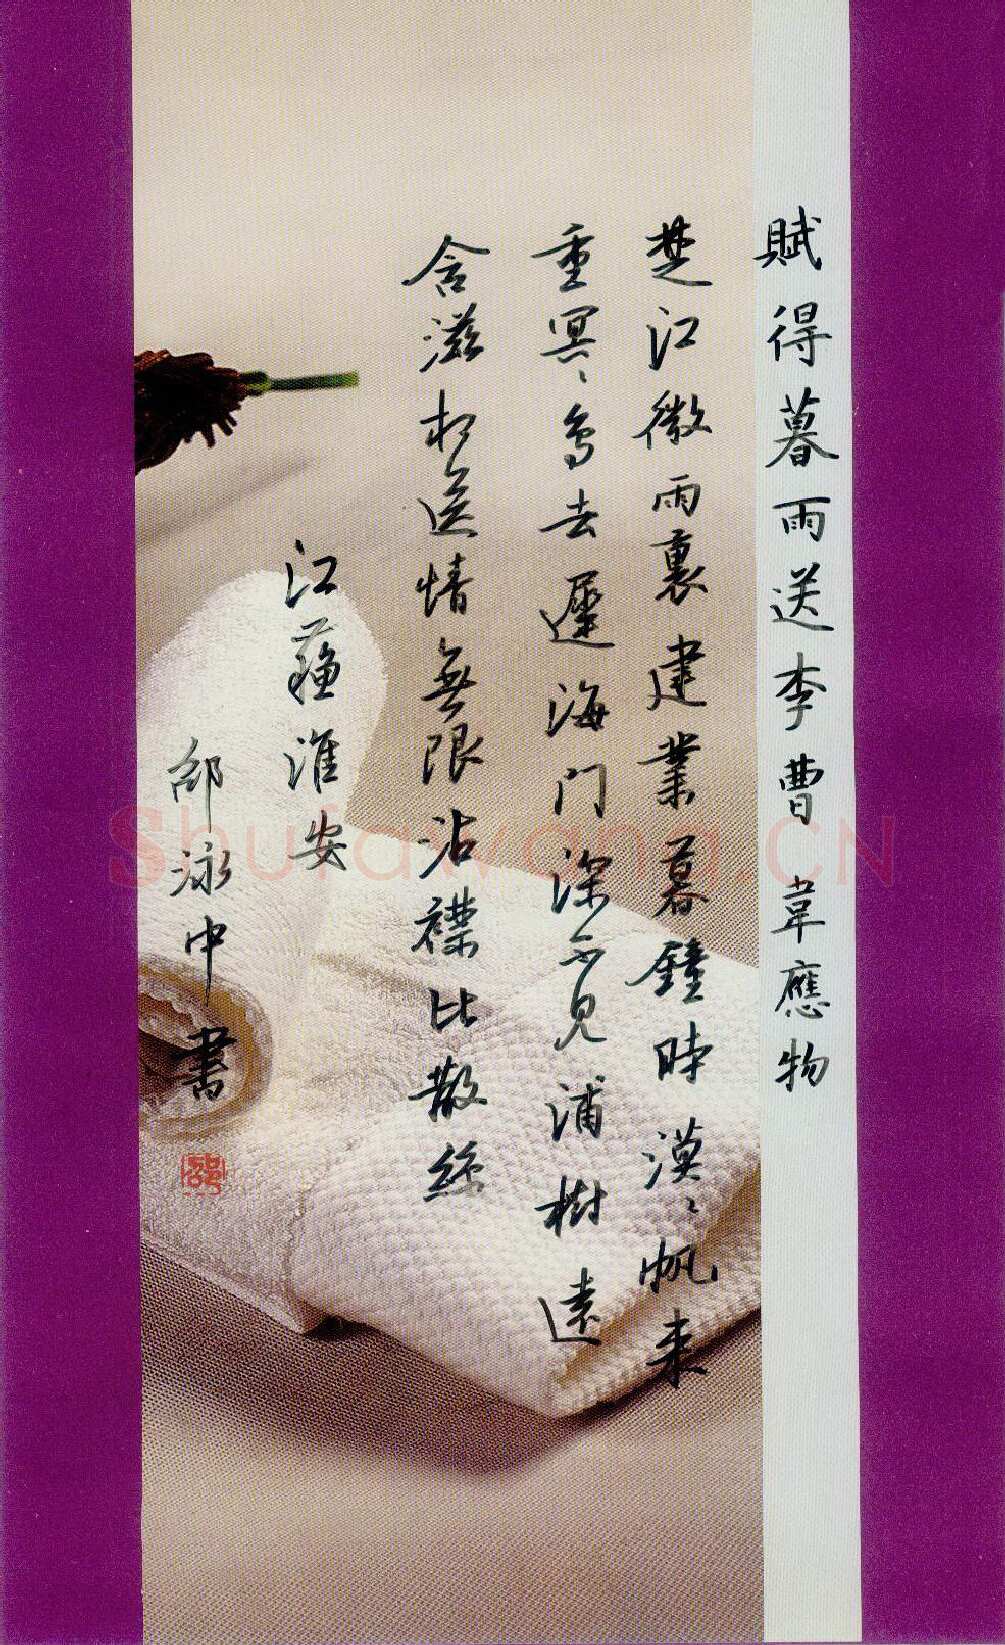 賦得暮雨送李曹 韋應物
楚江微雨裏建業暮鐘時漠、帆来
重冥、鳥去遲海门深不見浦樹遠
含滋相送情無限沾襟比散絲
江蘇淮安
邵泳中 書
邵
Shufawang.CN